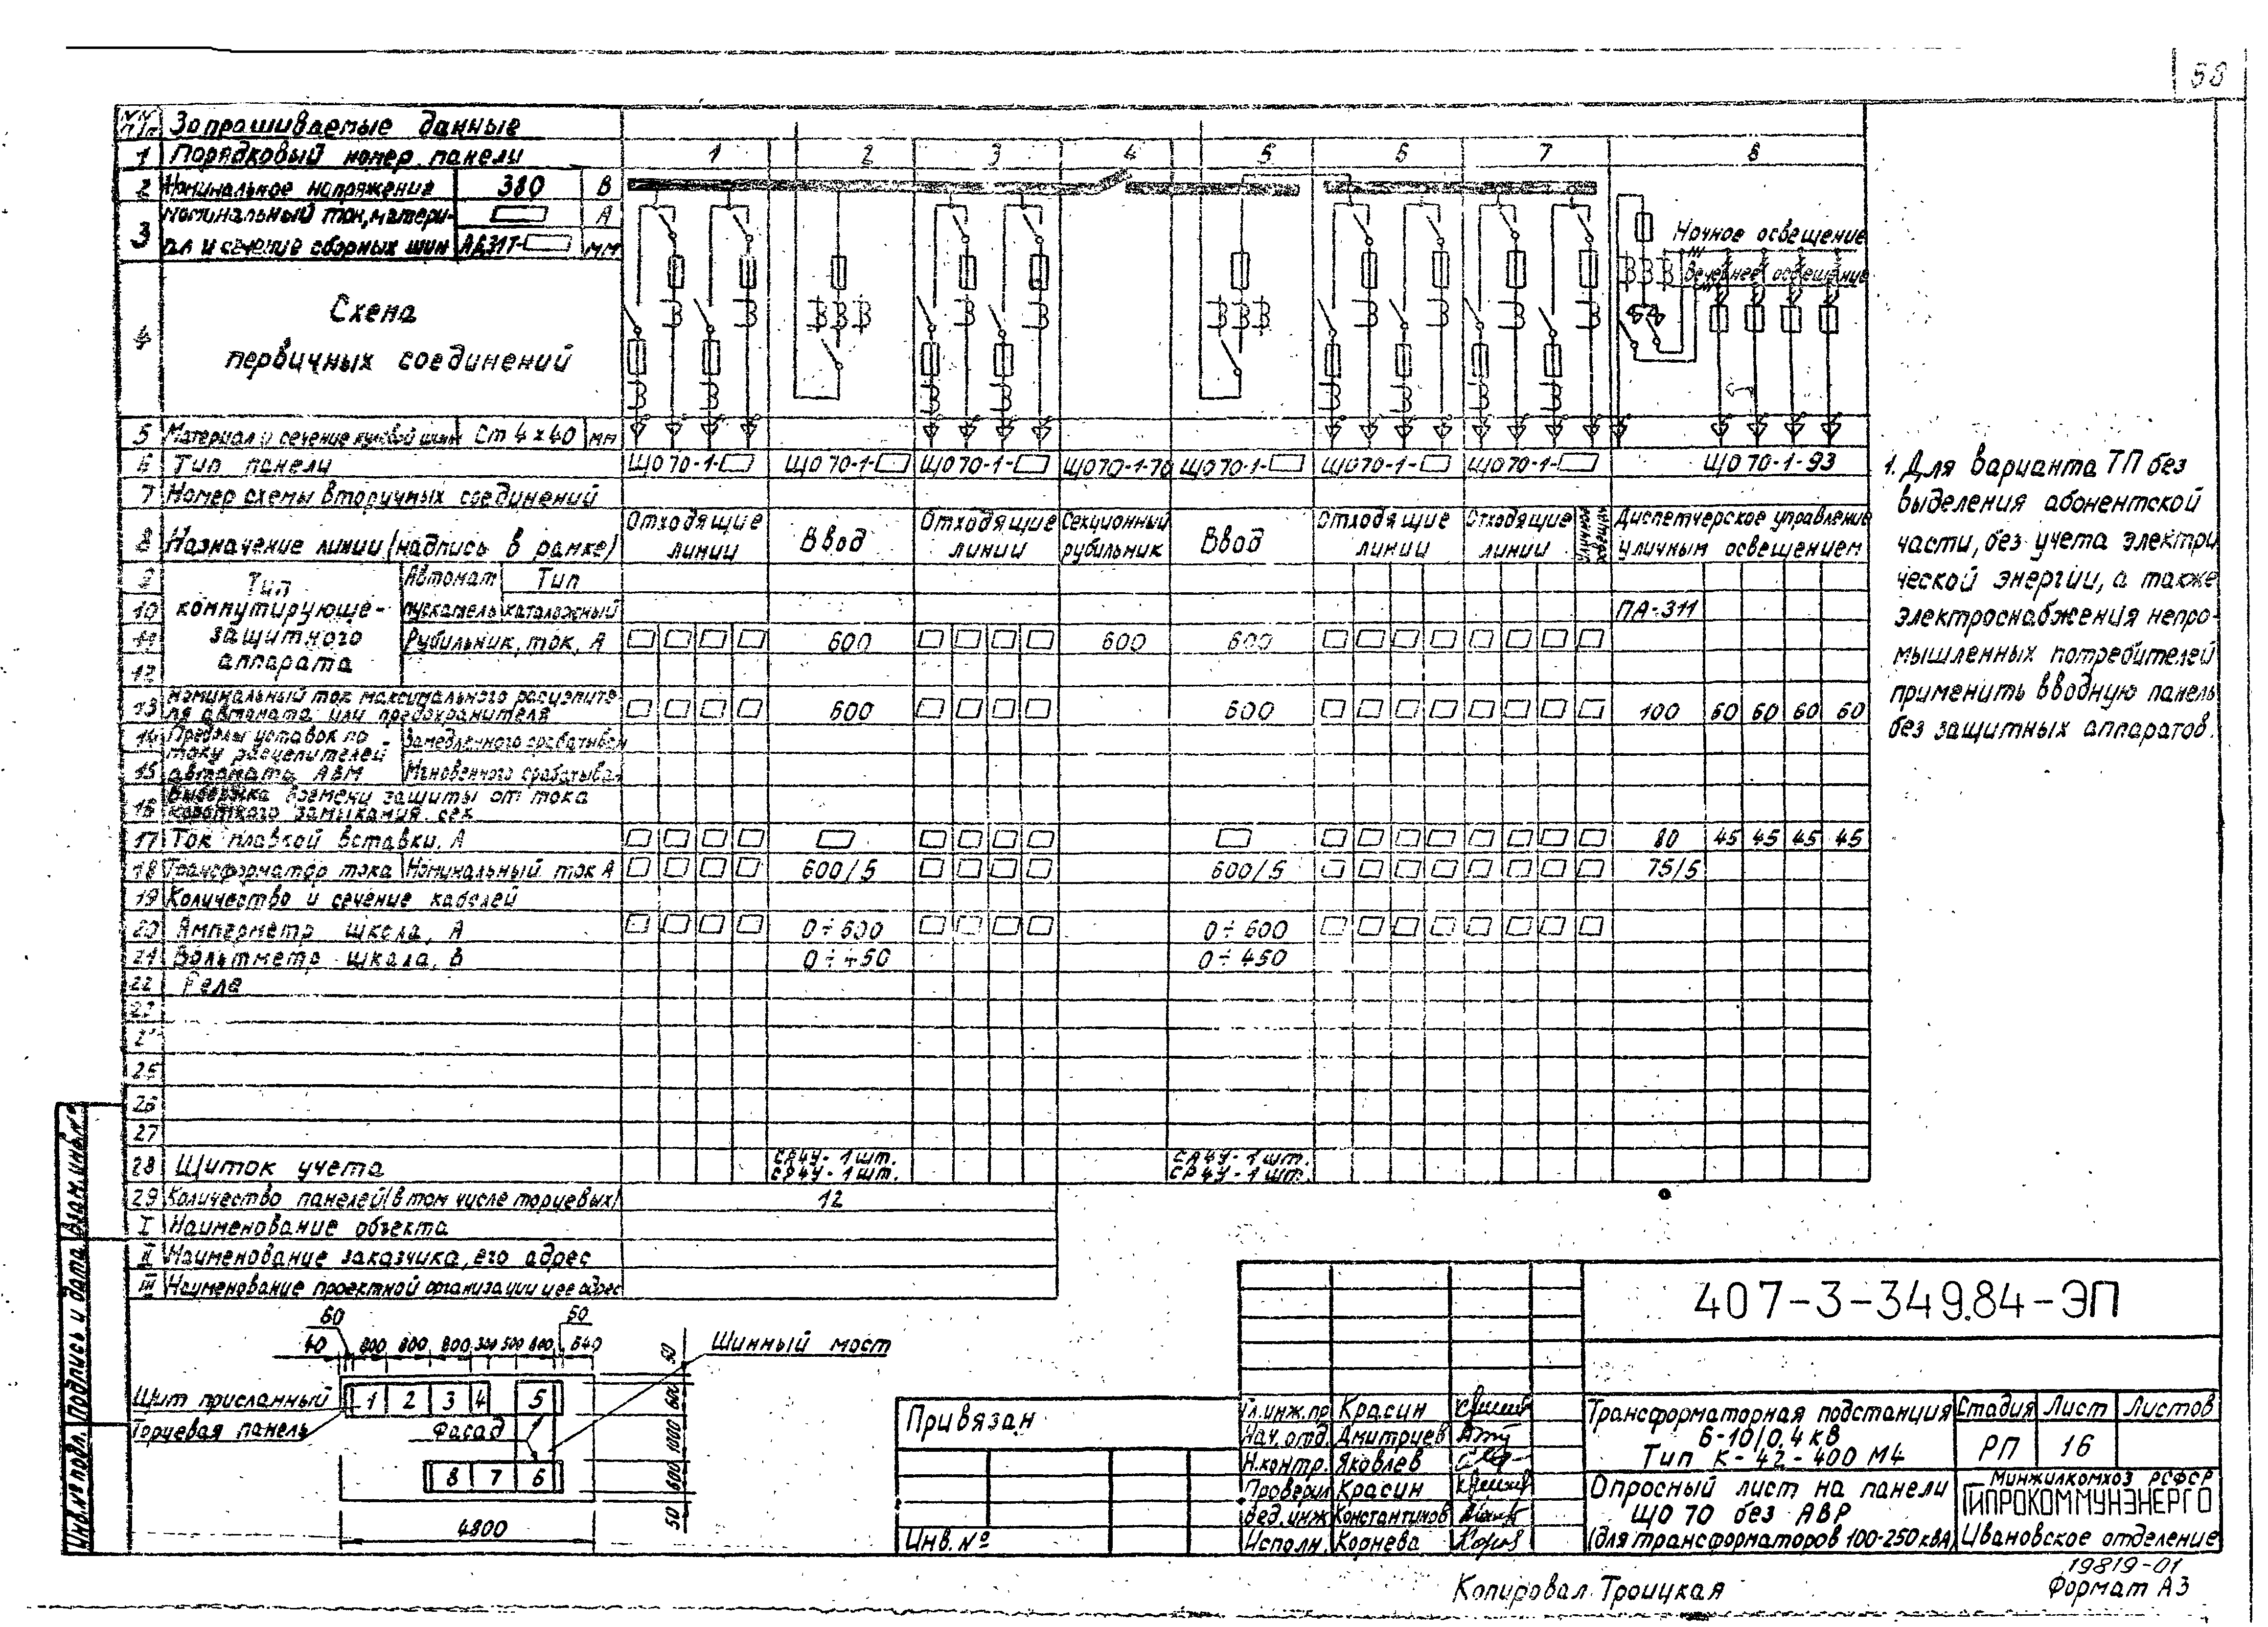 58
№№ пп Запрашиваемые данные
1 Порядковый номер панели 1 2 3 4 5 6 7 8
2 Номинальное напряжение 380 В
3 Номинальный ток, матери- А
ал и сечение сборных шин АД31Т- мм
Ночное освещение
Вечернее освещение
4 Схема
первичных соединений
5 Материал и сечение нулевой шины Ст 4×40 мм
6 Тип панели ЩО70-1- ЩО70-1- ЩО70-1- ЩО70-1-70 ЩО70-1- ЩО70-1- ЩО70-1- ЩО70-1-93
7 Номер схемы вторичных соединений
8 Назначение линии (надпись в рамке) Отходящие линии Ввод Отходящие линии Секционный рубильник Ввод Отходящие линии Отходящие линии Уличное освещен. Диспетчерское управление уличным освещением
9 Тип Автомат Тип
10 коммутирующе- пускатель каталожный ПА-311
11 защитного Рубильник, ток, А 600 600 600
12 аппарата
13 Номинальный ток максимального расцепите-
ля автомата или предохранителя 600 600 100 60 60 60 60
14 Пределы уставок по Замедленного срабатыван
току расцепителей
15 автомата АВМ Мгновенного срабатыван
16 Выдержка времени защиты от тока
короткого замыкания сек
17 Ток плавкой вставки, А 80 45 45 45 45
18 Трансформатор тока Номинальный ток А 600/5 600/5 75/5
19 Количество и сечение кабелей
20 Амперметр шкала, А 0÷600 0÷600
21 Вольтметр шкала, В 0÷450 0÷450
22 Реле
23
24
25
26
27
28 Щиток учета СА4У-1шт. СА4У-1шт.
СР4У-1шт. СР4У-1шт.
29 Количество панелей (в том числе торцевых) 12
I Наименование объекта
II Наименование заказчика, его адрес
III Наименование проектной организации и ее адрес
1. Для варианта ТП без
выделения абонентской
части, без учета электри
ческой энергии, а также
электроснабжения непро-
мышленных потребителей
применить вводную панель
без защитных аппаратов.
60 50
40 800 800 800 300 500 800 640
Шинный мост
Щит присланный 1 2 3 4 5
Торцевая панель Фасад
8 7 6
50 600 1000 600 50
4800
Взам.инв.№
Подпись и дата
Инв.№ подл.
Привязан
Инв. №
407-3-349.84-ЭП
Гл.инж.пр Красин
Нач.отд. Дмитриев
Н.контр. Яковлев
Проверил Красин
Вед.инж Константинов
Исполн. Корнева
Трансформаторная подстанция
6-10/0,4 кВ
Тип К-42-400 М4
Стадия Лист Листов
РП 16
Опросный лист на панели
ЩО 70 без АВР
(для трансформаторов 100-250 кВА)
Минжилкомхоз РСФСР
ГИПРОКОММУНЭНЕРГО
Ивановское отделение
19819-01
Копировал Троицкая Формат А3